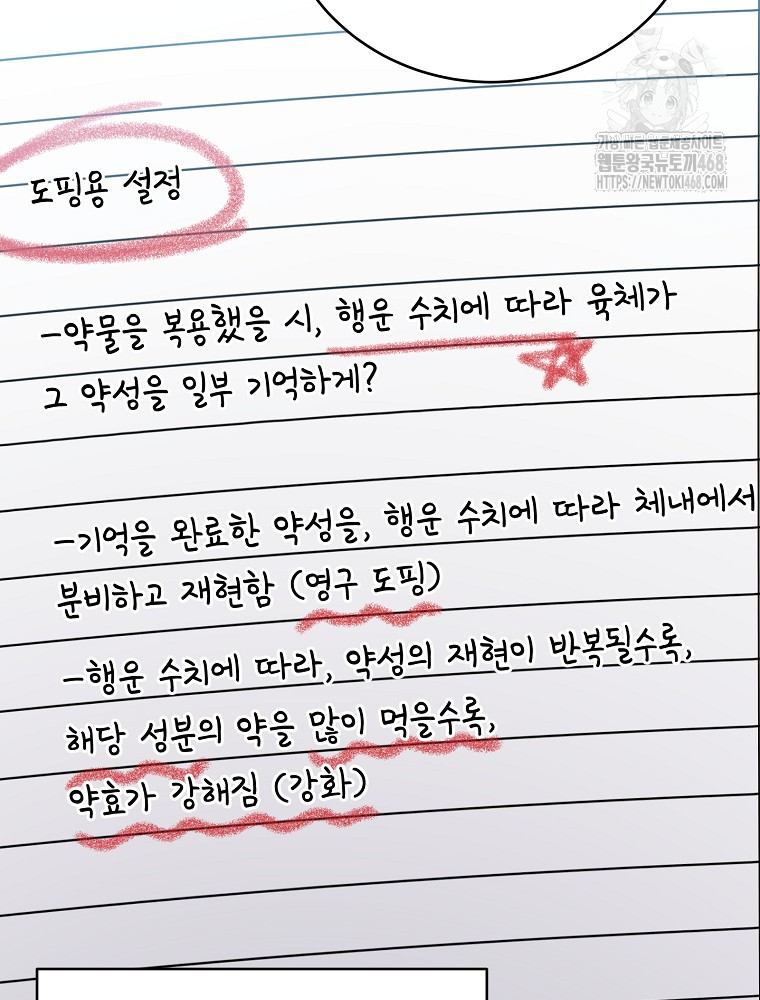 가장 빠른 웹툰제공사이트
웹툰왕국뉴토끼468
HTTPS://NEWTOKI468.COM
도핑용 설정
-약물을 복용했을 시, 행운 수치에 따라 육체가
그 약성을 일부 기억하게?
-기억을 완료한 약성을, 행운 수치에 따라 체내에서
분비하고 재현함 (영구 도핑)
-행운 수치에 따라, 약성의 재현이 반복될수록,
해당 성분의 약을 많이 먹을수록,
약효가 강해짐 (강화)